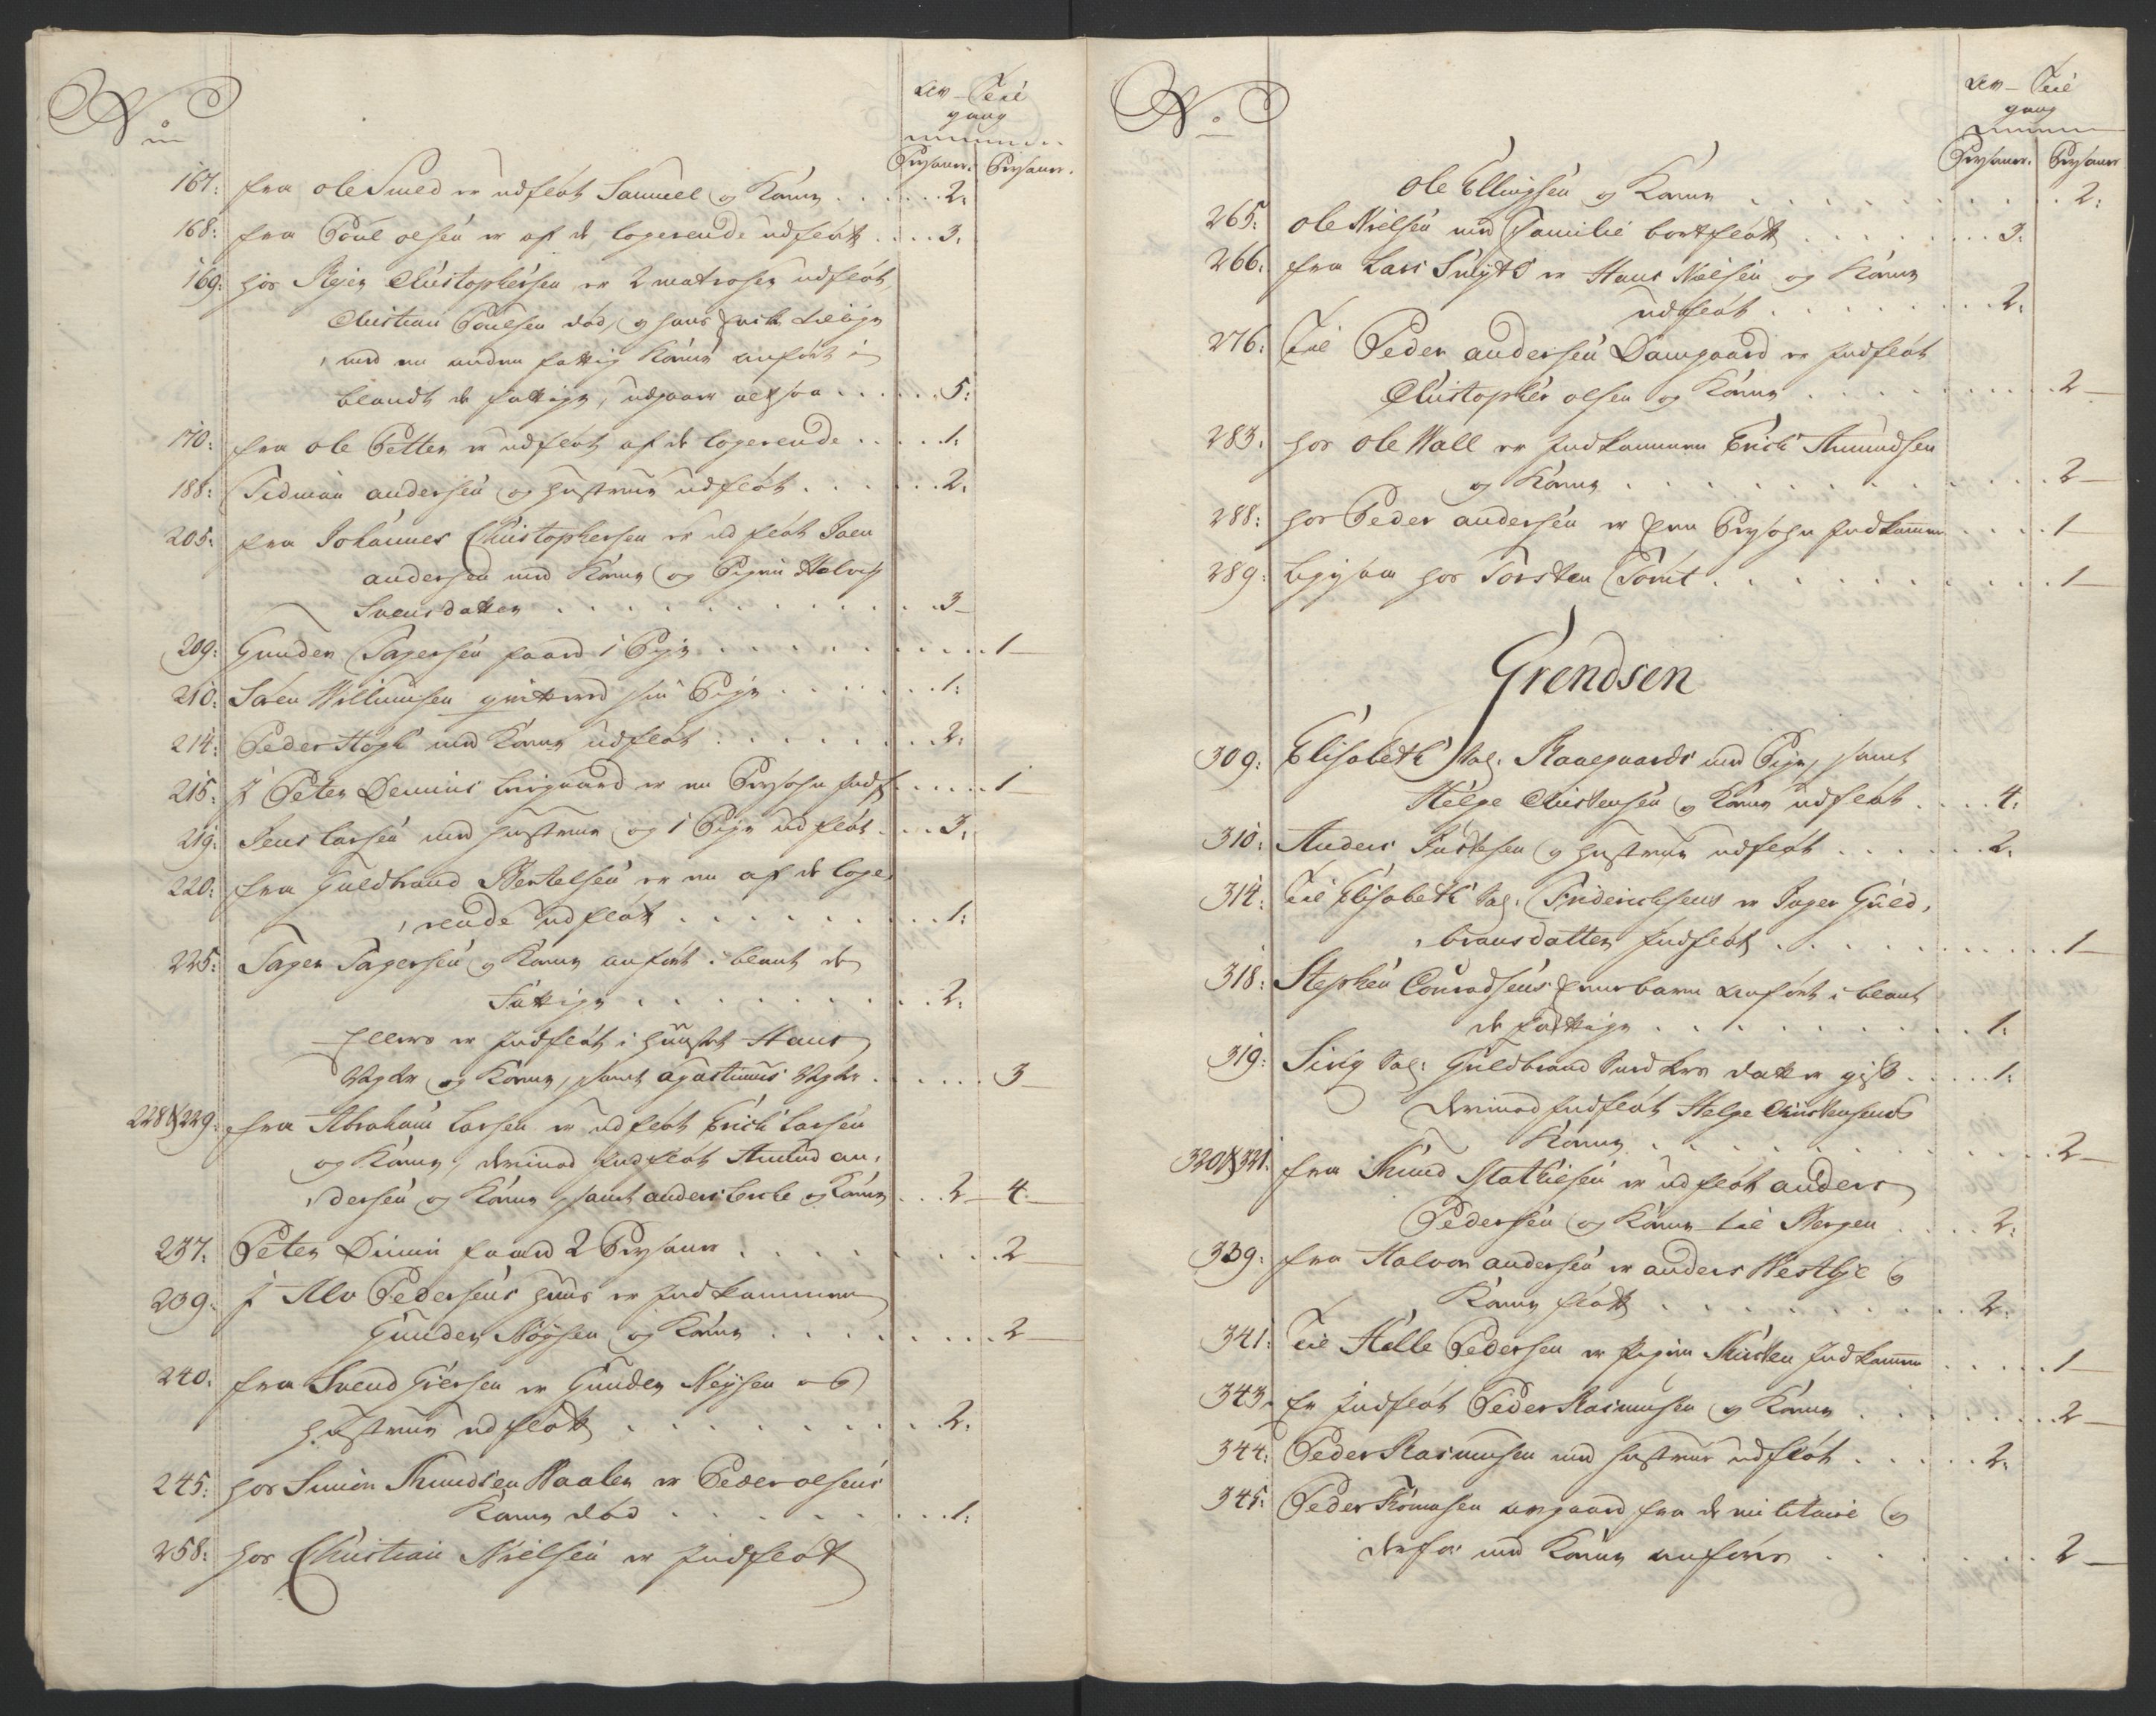 No
Av - Til
gang
Persaaner. Persaaner.
167: fra ole Smed er udfløt Samuel og Kone . . . . . 2:
168: fra Poul olsen er af de logerende udfløt . . . . 3.
169: hos Christophersen er 2 matroser udfløt
Christian Poulsen død, og hans
med en anden fattig Kone anført i
blandt de fattige, udgaar altsaa . . . . . 5:
170: fra ole Petter er udfløt af de logerende . . . . . 1:
188: Tidman andersen og hustrue udfløt . . . . . . 2.
205: fra Johannes Christophersen er udfløt Joen
andersen med Kone og Pigen
Svensdatter . . . . . . . . . . . . 3 -
209: Gunder Tagersen faaed 1 Pige . . . . . . . . . . 1 -
210: Søren Willumsen qvitteret sin Pige . . . . . . 1:
214: Peder Høgh med Kone udfløt . . . . . . . 2:
215: I Peter Dennis er en Persohn indf. . . . . 1 -
219: Jens larsen med hustrue og 1 Pige udfløt . . . 3.
220: fra Guldbrand Bertelsen er en af de loge-
rende udfløt . . . . . . . . . 1:
225: Tager Tagersen og Kone anført i blant de
Fattige . . . . . . . . . . 2:
Ellers er Indfløt i huuset Hans
og Kone, samt agustinus . . . . . . 3 -
228 & 229: fra Abraham larsen er udfløt Erich larsen
og Kone, derimod Indfløt Amund an-
dersen og Kone samt anders og Kone . . . 2 - 4 -
237: Peter Dinnis faaed 2 Persaaner . . . . . . . . . 2 -
239: I Alv Pedersens huus er Indkommen
Gunder Nøysen og Kone . . . . . . . . . 2 -
240: fra Svend Giersen er Gunder Neysen og
hustrue udfløtt . . . . . . . . . . 2.
245: hos Simon Knudsen Waaler er Peder olsens
Kone død . . . . . . . . . 1:
258: hos Christian Nielsen er Indfløt
No
Av - Til
gang
Persaaner. Persaaner
ole Ellingsen og Kone . . . . . . . . . . . 2:
265: ole Nielsen med Familie bortfløtt . . . . . . . 3:
266: fra Lars er Hans Nielsen og Kone
udfløt . . . . . . . . 2:
276: Til Peder andersen Damgaard er Indfløt
Christopher olsen og Kone . . . . . . . . . . 2 -
283: hos ole Wall er Indkommen Erich Amundsen
og Kone . . . . . . . . . . . . . . 2 -
288: hos Peder andersen er Een Persohn Indkommen . . . . 1 -
289: ligesaa hos Torsten . . . . . . . . . . . . 1 -
Grendsen
309: Elisabeth Sal: Raaegaards med Pige, samt
Helge Christensen og Kone udfløt . . . . 4:
310: Anders og hustrue udfløt . . . . . . . 2.
314: Til Elisabeth Sal: Friderichsens er Inger Guld-
bransdatter Indfløt . . . . . . . . . . . . 1 -
318: Stephen Conradsens barn anført i blant
de fattige . . . . . . . . . . . . 1:
319: Siny Sal: Guldbrand datter gift . . . . . 1:
derimod Indfløt Helge Christensens
Kone . . . . . . . . . . . . . . 2 -
320 & 321: fra Knud Mathiesen er udfløt anders
Pedersen og Kone til Bergen . . . . 2:
339: fra Halvor andersen er anders Westbye og
Kone fløtt . . . . . . . . . . . 2:
341: Til Helle Pedersen er pigen Kirsten Indkommen . . . . 1 -
343. Er Indfløt Peder Rasmusen og Kone . . . . . . . 2 -
344: Peder Rasmusen med hustrue udfløt . . . . . 2:
345: Peder Thomasen avgaaed fra de militaire og
derfor med Kone anføres . . . . . . . . 2 -